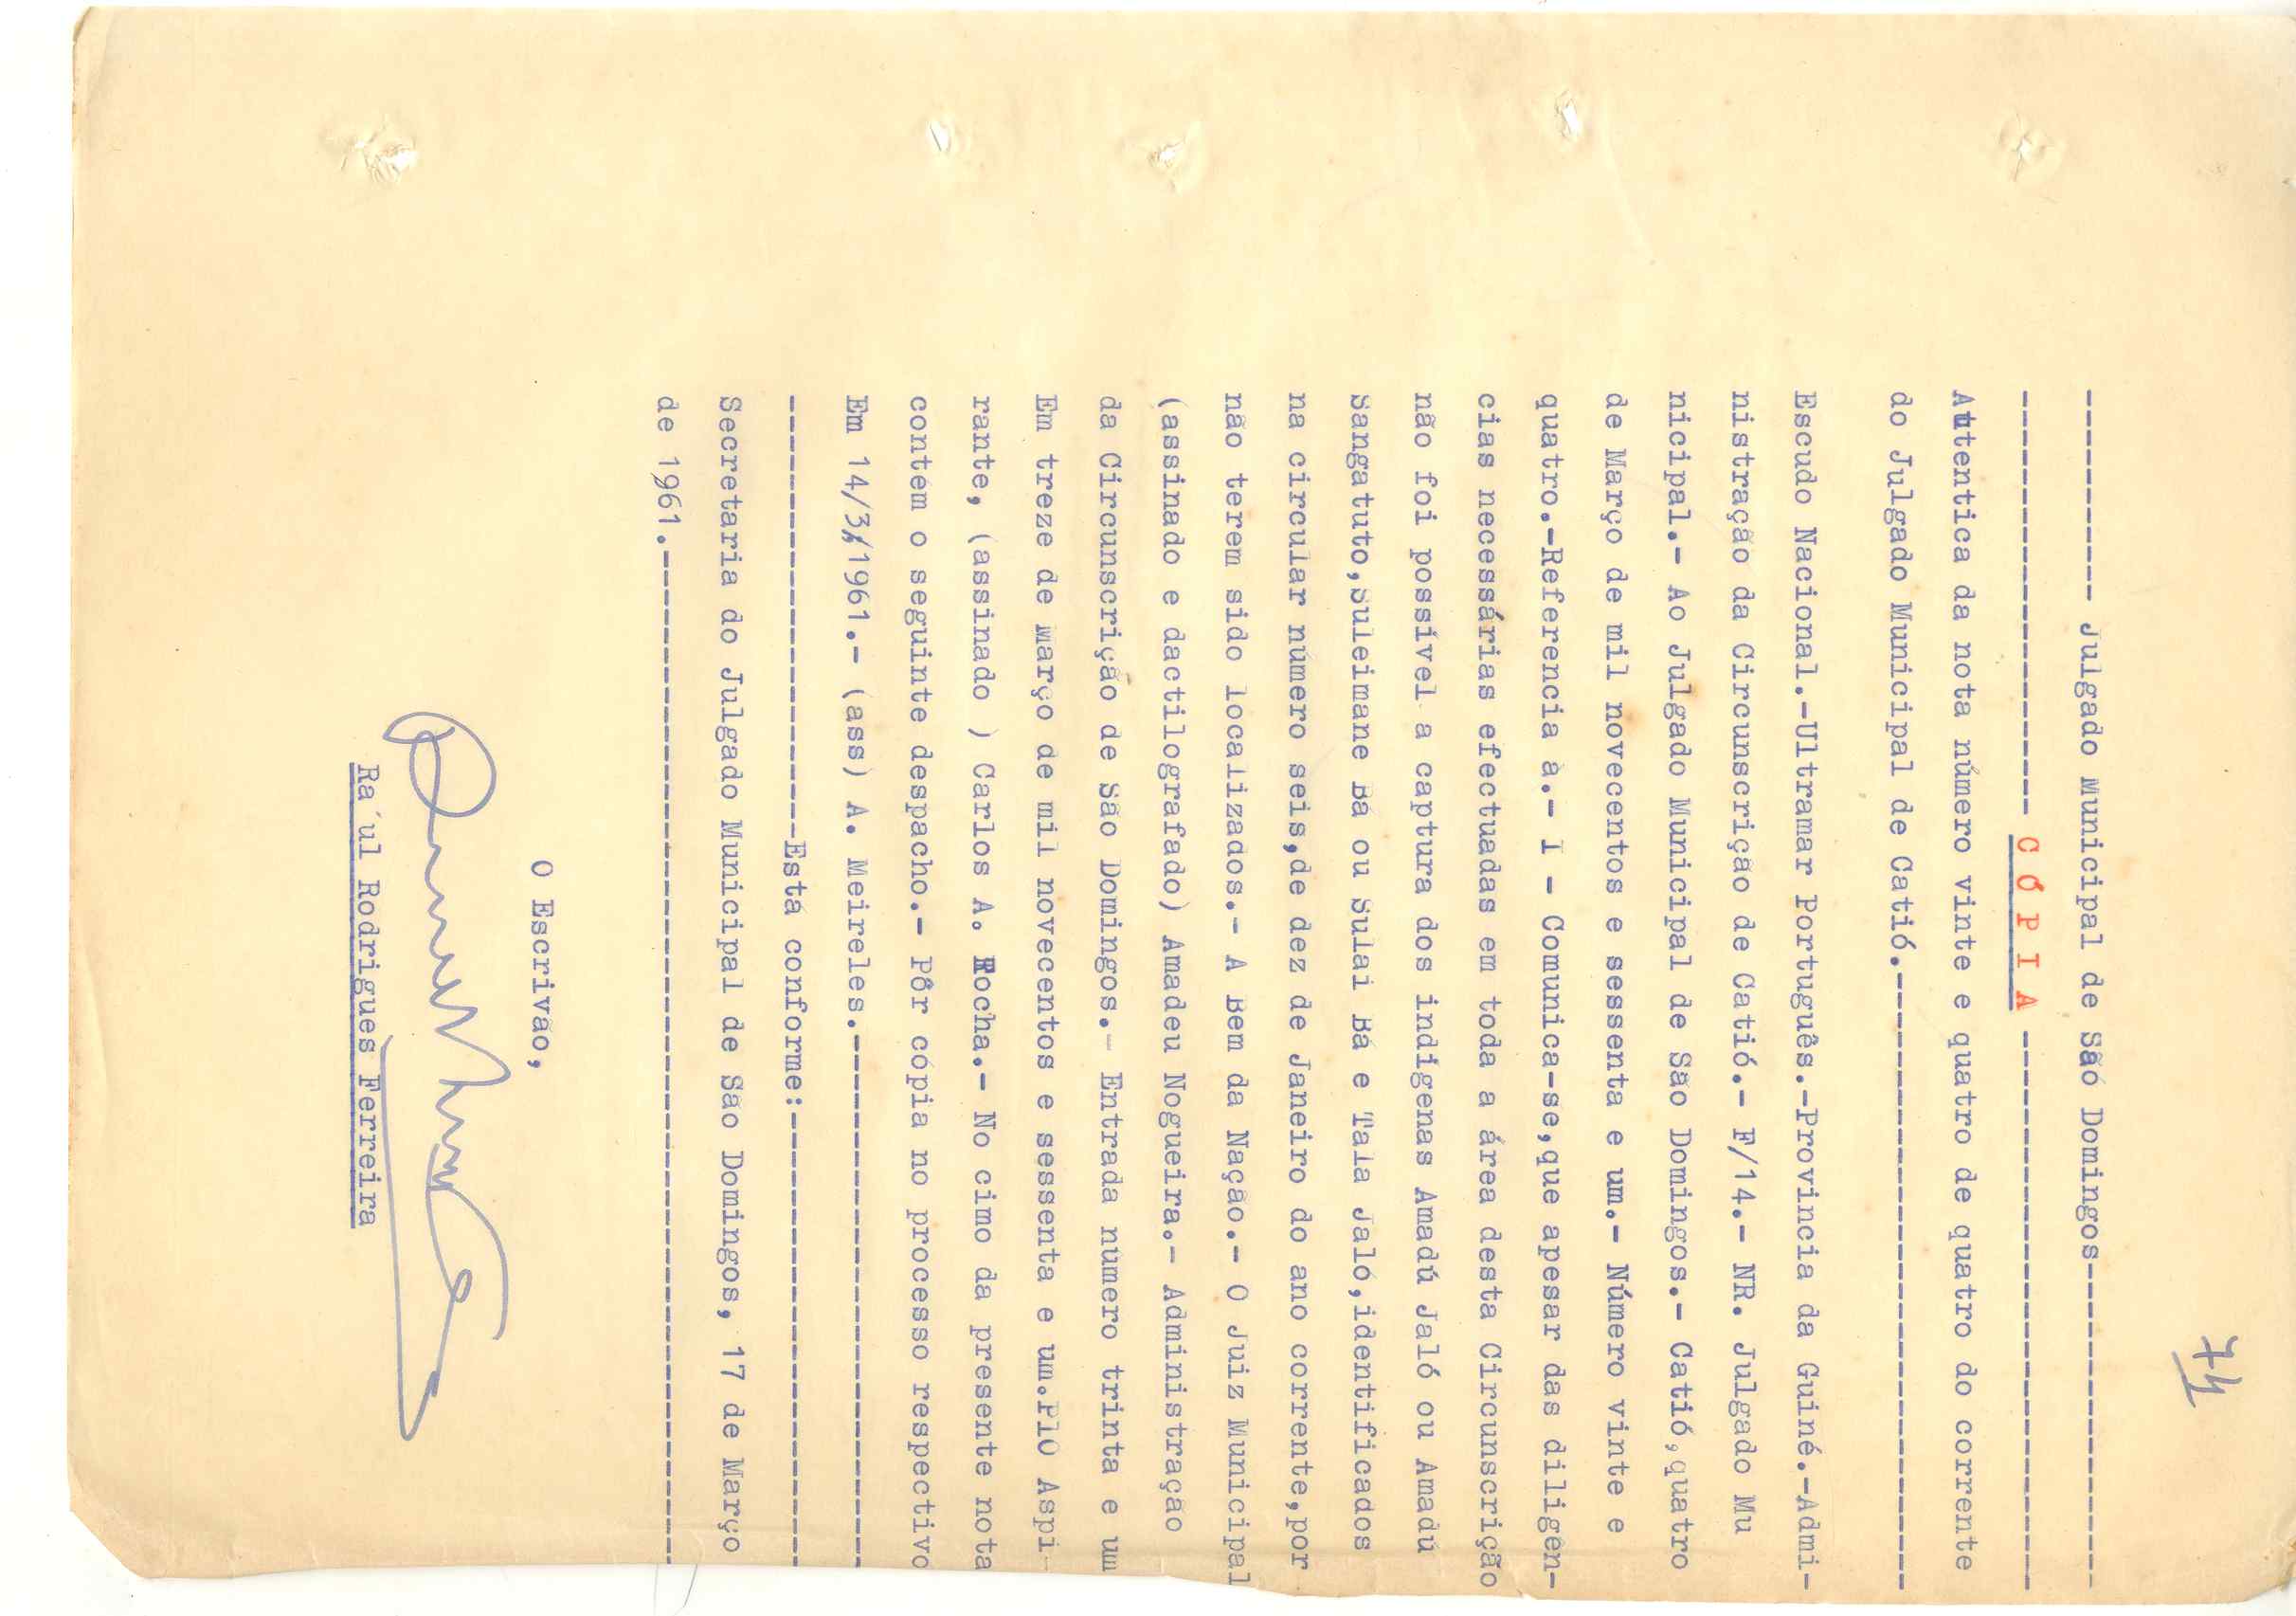 74
---------- Julgado Municipal de São Domingos----------------
-------------------- C Ó P I A ---------------------------
Autentica da nota número vinte e quatro de quatro do corrente
do Julgado Municipal de Catió.------------------------------
Escudo Nacional.-Ultramar Português.-Provincia da Guiné.-Admi-
nistração da Circunscrição de Catió.- F/14.- NR. Julgado Mu
nicipal.- Ao Julgado Municipal de São Domingos.- Catió,quatro
de Março de mil novecentos e sessenta e um.- Número vinte e
quatro.-Referencia a.- 1 - Comunica-se,que apesar das diligên-
cias necessárias efectuadas em toda a área desta Circunscrição
não foi possível a captura dos indígenas Amadú Jaló ou Amadú
Sangatuto,Suleimane Bá ou Sulai Bá e Tala Jaló,identificados
na circular número seis,de dez de Janeiro do ano corrente,por
não terem sido localizados.- A Bem da Nação.- O Juiz Municipal
(assinado e dactilografado) Amadeu Nogueira.- Administração
da Circunscrição de São Domingos.- Entrada número trinta e um
Em treze de março de mil novecentos e sessenta e um.PlO Aspi-
rante, (assinado ) Carlos A. Rocha.- No cimo da presente nota
contém o seguinte despacho.- Pôr cópia no processo respectivo
Em 14/3/1961.- (ass) A. Meireles.---------------------------
---------------------Está conforme:-------------------------
Secretaria do Julgado Municipal de São Domingos, 17 de Março
de 1961.----------------------------------------------------
O Escrivão,
Ra´ul Rodrigues Ferreira